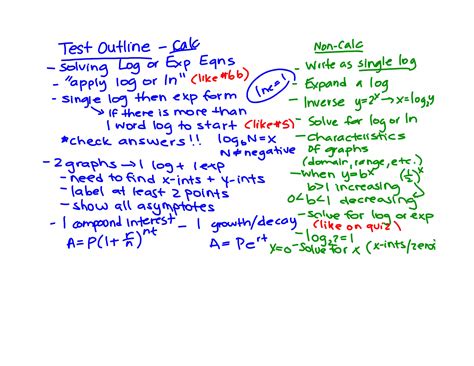 Test Outline - Calc
- Solving Log or Exp Eqns
- "apply log or ln" (like #6b)
- single log then exp form
↳ If there is more than
1 word log to start (like #5)
*check answers!! log_b N = x
N ≠ negative
- 2 graphs → 1 log + 1 exp
- need to find x-ints + y-ints
- label at least 2 points
- show all asymptotes
- 1 compound interest - 1 growth/decay
A = P(1 + r/n)^nt A = Pe^rt
ln e = 1
Non-Calc
- Write as single log
- Expand a log
- Inverse y=2^x → x=log_2 y
- Solve for log or ln
- Characteristics
of graphs
(domain, range, etc.)
- When y=b^x (1/2)^x
b>1 increasing
0<b<1 decreasing
- Solve for log or exp
(like on quiz)
- log_2 ? = 1
x=0 - Solve for x (x-ints/zeros